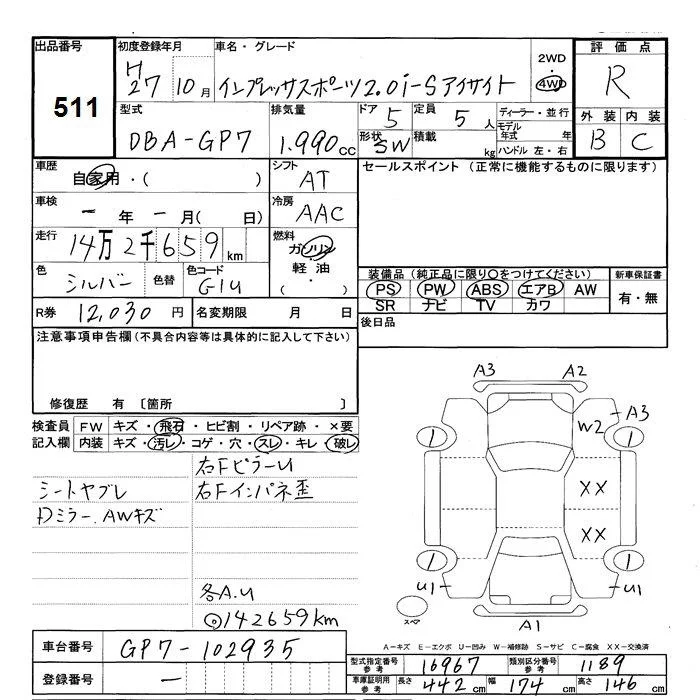 出品番号
511
初度登録年月
H27 10月
車名・グレード
インプレッサスポーツ2.0i-Sアイサイト
2WD
4WD
評価点
R
外装 内装
B C
型式
DBA-GP7
排気量
1.990cc
ドア
5
定員
5人
形状
SW
積載
kg
ディーラー・並行
モデル年式 年
ハンドル 左・右
車歴
自家用・( )
シフト
AT
セールスポイント (正常に機能するものに限ります)
車検
ー年ー月( 日)
冷房
AAC
走行
14万2千659km
燃料
ガソリン
軽油
( ・ )
色
シルバー
色替
色コード
G1U
装備品 (純正品に限り○をつけてください)
PS PW ABS エアB AW
SR ナビ TV カワ
新車保証書
有・無
R券 12,030円
名変期限 月 日
後日品
注意事項申告欄(不具合内容等は具体的に記入して下さい)
修復歴 有 〔箇所 〕
検査員記入欄
FW キズ・飛石・ヒビ割・リペア跡・×要
内装 キズ・汚レ・コゲ・穴・スレ・キレ・破レ
右FピラーU
シートヤブレ
右Fインパネ歪
Dミラー、AWキズ
各A.U
◎142659km
A3 A2
W2 A3
1 1
XX
XX
1 1
U1 U1
スペア
A1
車台番号 GP7-102935
登録番号 ー
A-キズ E-エクボ U-凹み W-補修跡 S-サビ C-腐食 XX-交換済
型式指定番号 参考 16967
類別区分番号 参考 1189
車庫証明用 参考 長さ 442cm 幅 174cm 高さ 146cm